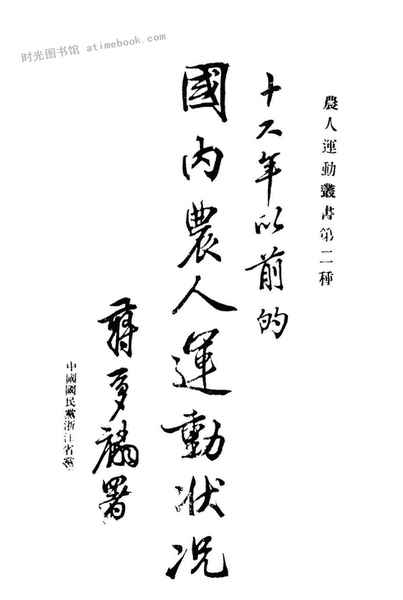 时光图书馆 atimebook.com
農人運動叢書第二種
十六年以前的
國內農人運動狀况
蔣 署
中國國民黨浙江省黨